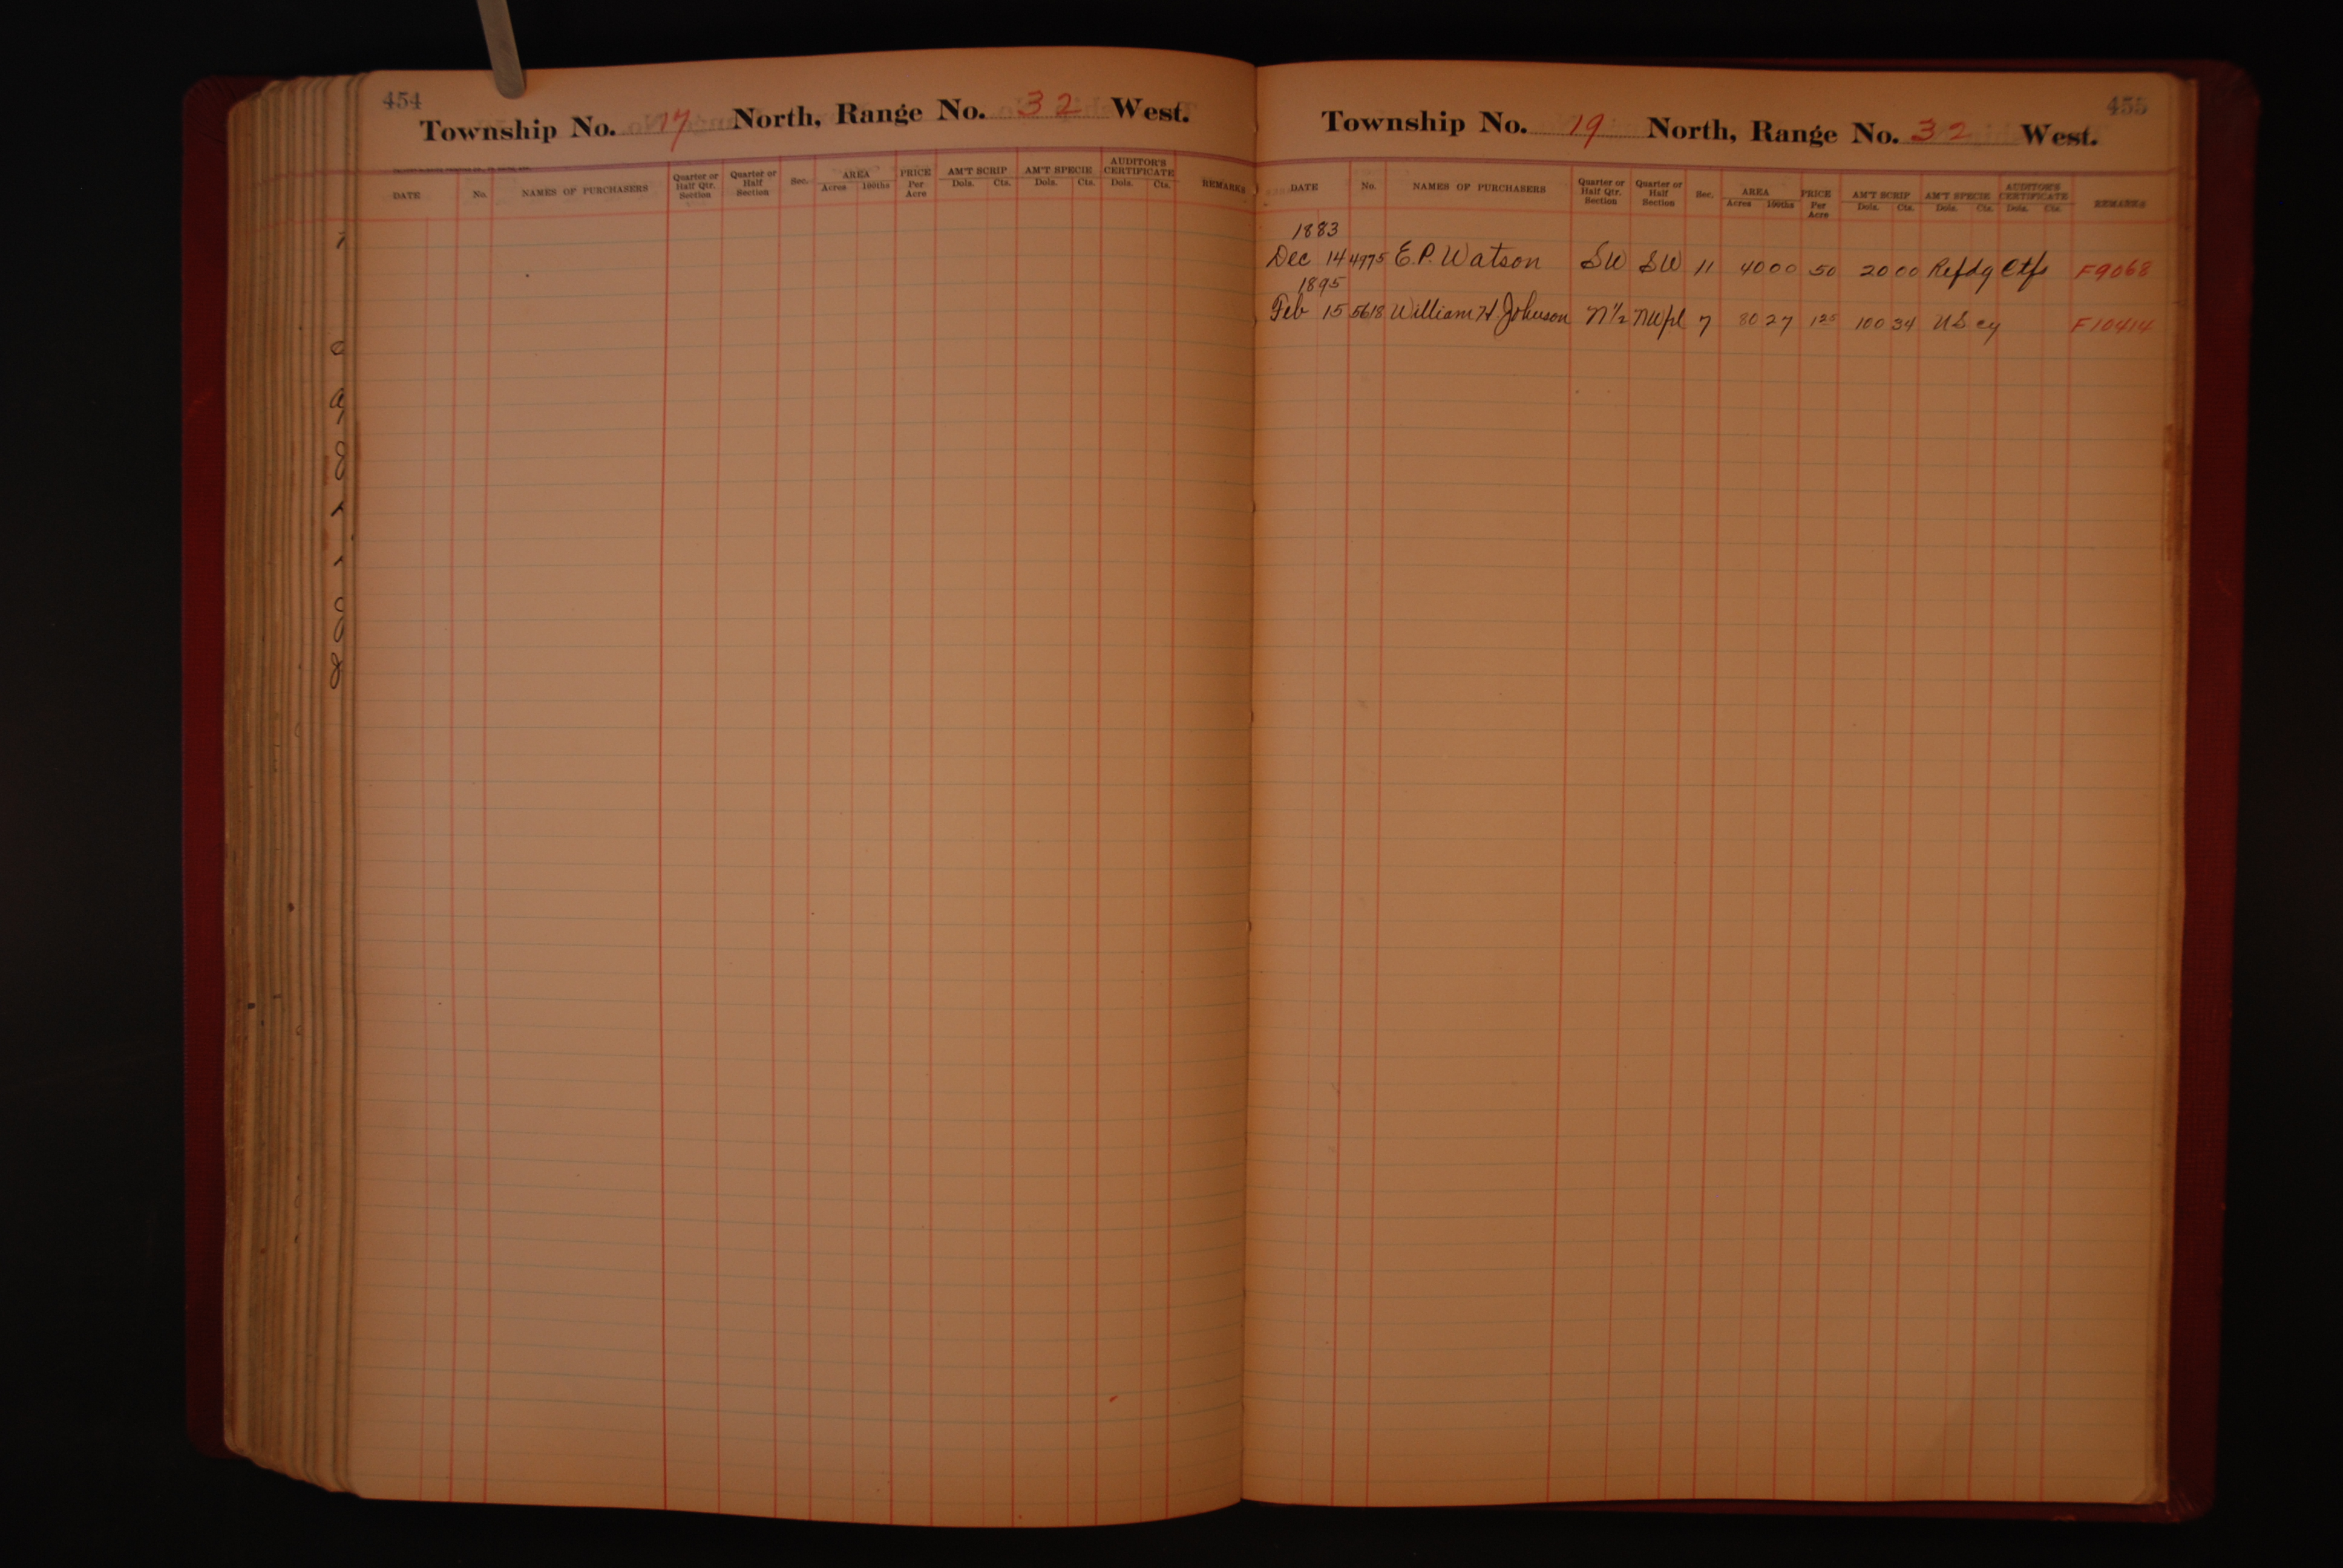 454
Township No. 17 North, Range No. 32 West.
DATE No. NAMES OF PURCHASERS Quarter or Half Qtr. Section Quarter or Half Section Sec. AREA Acres 100ths PRICE Per Acre AM'T SCRIP Dols. Cts. AM'T SPECIE Dols. Cts. AUDITOR'S CERTIFICATE Dols. Cts. REMARKS
455
Township No. 19 North, Range No. 32 West.
DATE No. NAMES OF PURCHASERS Quarter or Half Qtr. Section Quarter or Half Section Sec. AREA Acres 100ths PRICE Per Acre AM'T SCRIP Dols. Cts. AM'T SPECIE Dols. Cts. AUDITOR'S CERTIFICATE Dols. Cts. REMARKS
1883
Dec 14 4975 E. P. Watson SW SW 11 40 00 50 20 00 Refdg Ctfs F9068
1895
Feb 15 5618 William H Johnson N 1/2 NWfrl 7 80 27 1 25 100 34 US cy F10414